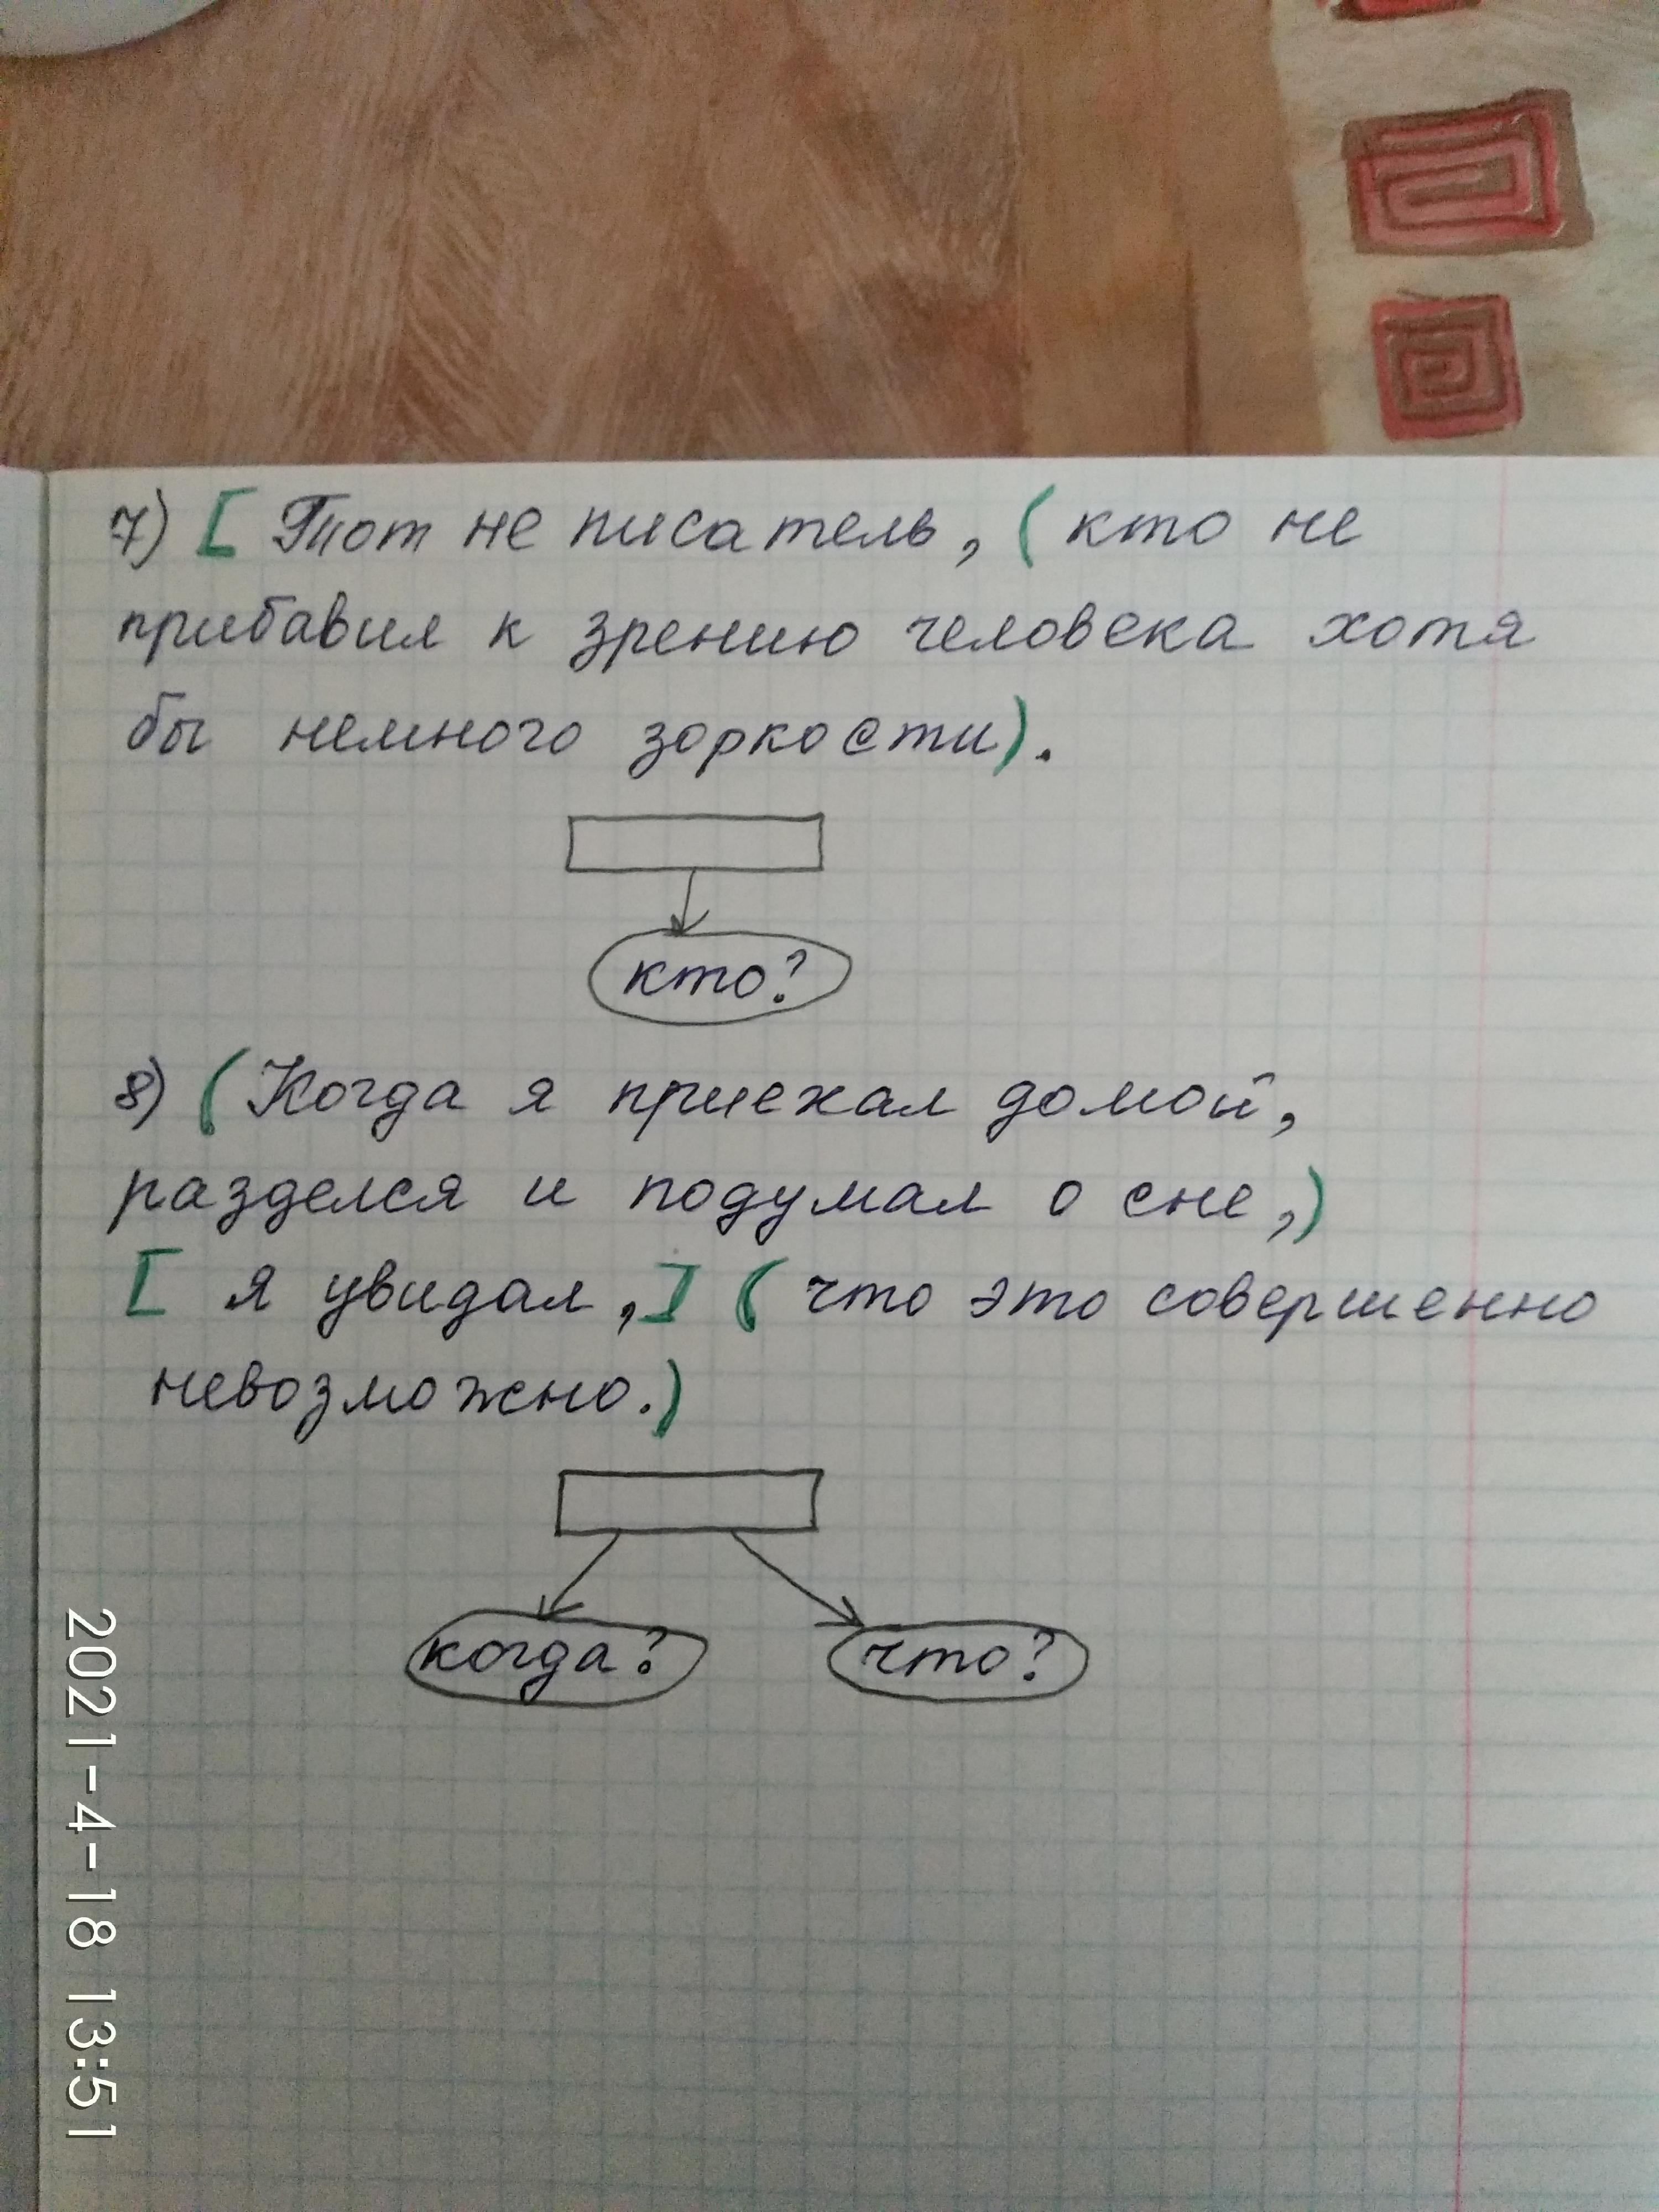 7) [ Тот не писатель, ( кто не
прибавил к зрению человека хотя
бы немного зоркости).
кто?
8) ( Когда я приехал домой,
разделся и подумал о сне,)
[ я увидал,] ( что это совершенно
невозможно.)
когда? что?
2021-4-18 13:51